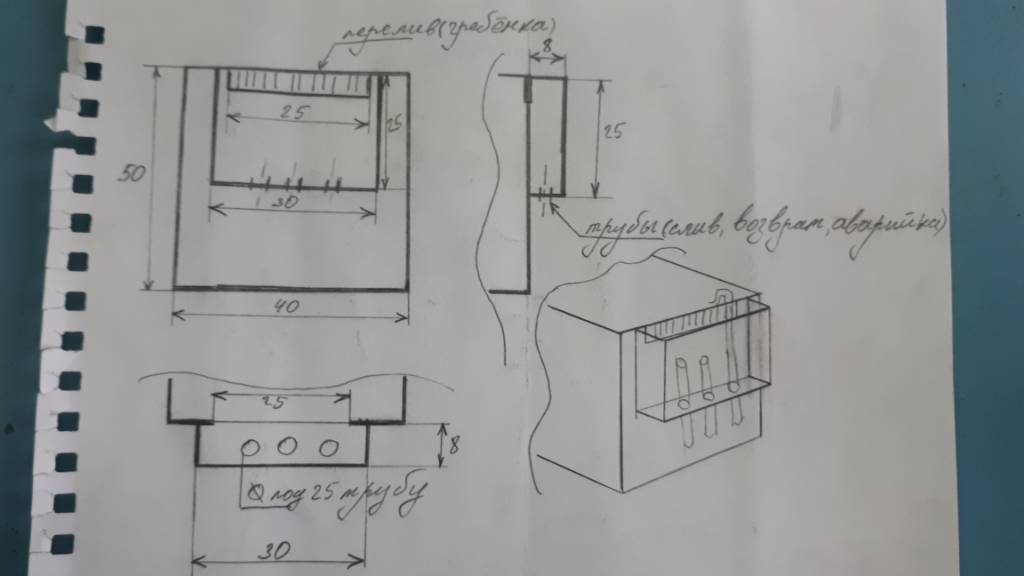 перелив(гребёнка)
8
25
25
25
50
30
трубы(слив, возврат, аварийка)
40
25
8
под 25 трубу
30